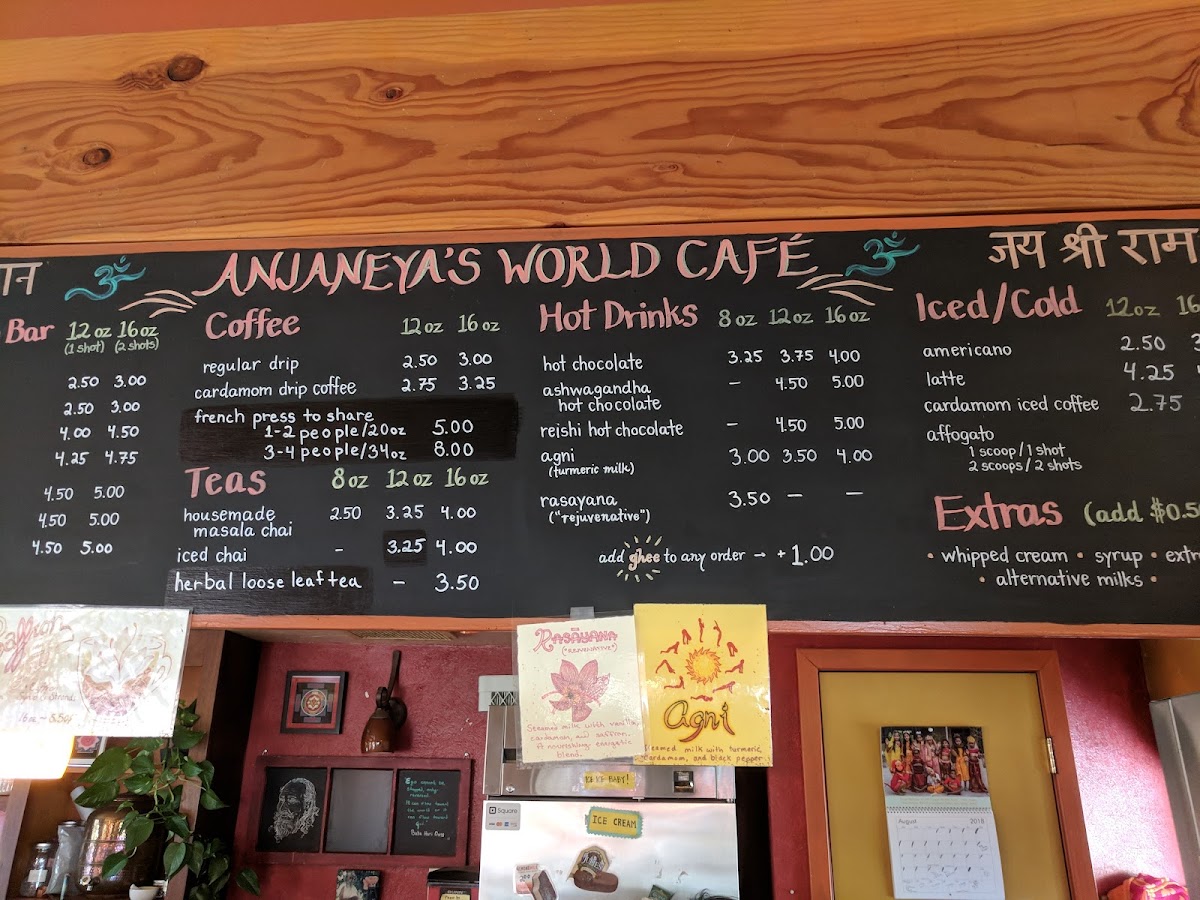 ान
ANJANEYA'S WORLD CAFÉ
जय श्री राम
Bar 12 oz 16 oz
(1 shot) (2 shots)
2.50 3.00
2.50 3.00
4.00 4.50
4.25 4.75
4.50 5.00
4.50 5.00
4.50 5.00
Coffee 12 oz 16 oz
regular drip 2.50 3.00
cardamom drip coffee 2.75 3.25
french press to share
1-2 people/20oz 5.00
3-4 people/34oz 8.00
Teas 8 oz 12 oz 16 oz
housemade 2.50 3.25 4.00
masala chai
iced chai - 3.25 4.00
herbal loose leaf tea - 3.50
Hot Drinks 8 oz 12 oz 16 oz
hot chocolate 3.25 3.75 4.00
ashwagandha - 4.50 5.00
hot chocolate
reishi hot chocolate - 4.50 5.00
agni 3.00 3.50 4.00
(turmeric milk)
rasayana 3.50 - -
("rejuvenative")
add ghee to any order → +1.00
Iced/Cold 12 oz 16
americano 2.50
latte 4.25
cardamom iced coffee 2.75
affogato
1 scoop/1 shot
2 scoops/2 shots
Extras (add $0.50
• whipped cream • syrup • extr
• alternative milks •
Saffron
RASAYANA
("REJUVENATIVE")
Steamed milk with vanilla,
cardamom, and saffron.
A nourishing, energetic
blend.
Agni
Steamed milk with turmeric,
cardamom, and black pepper
Baba Hari Dass
Square
ICE CREAM
August 2018